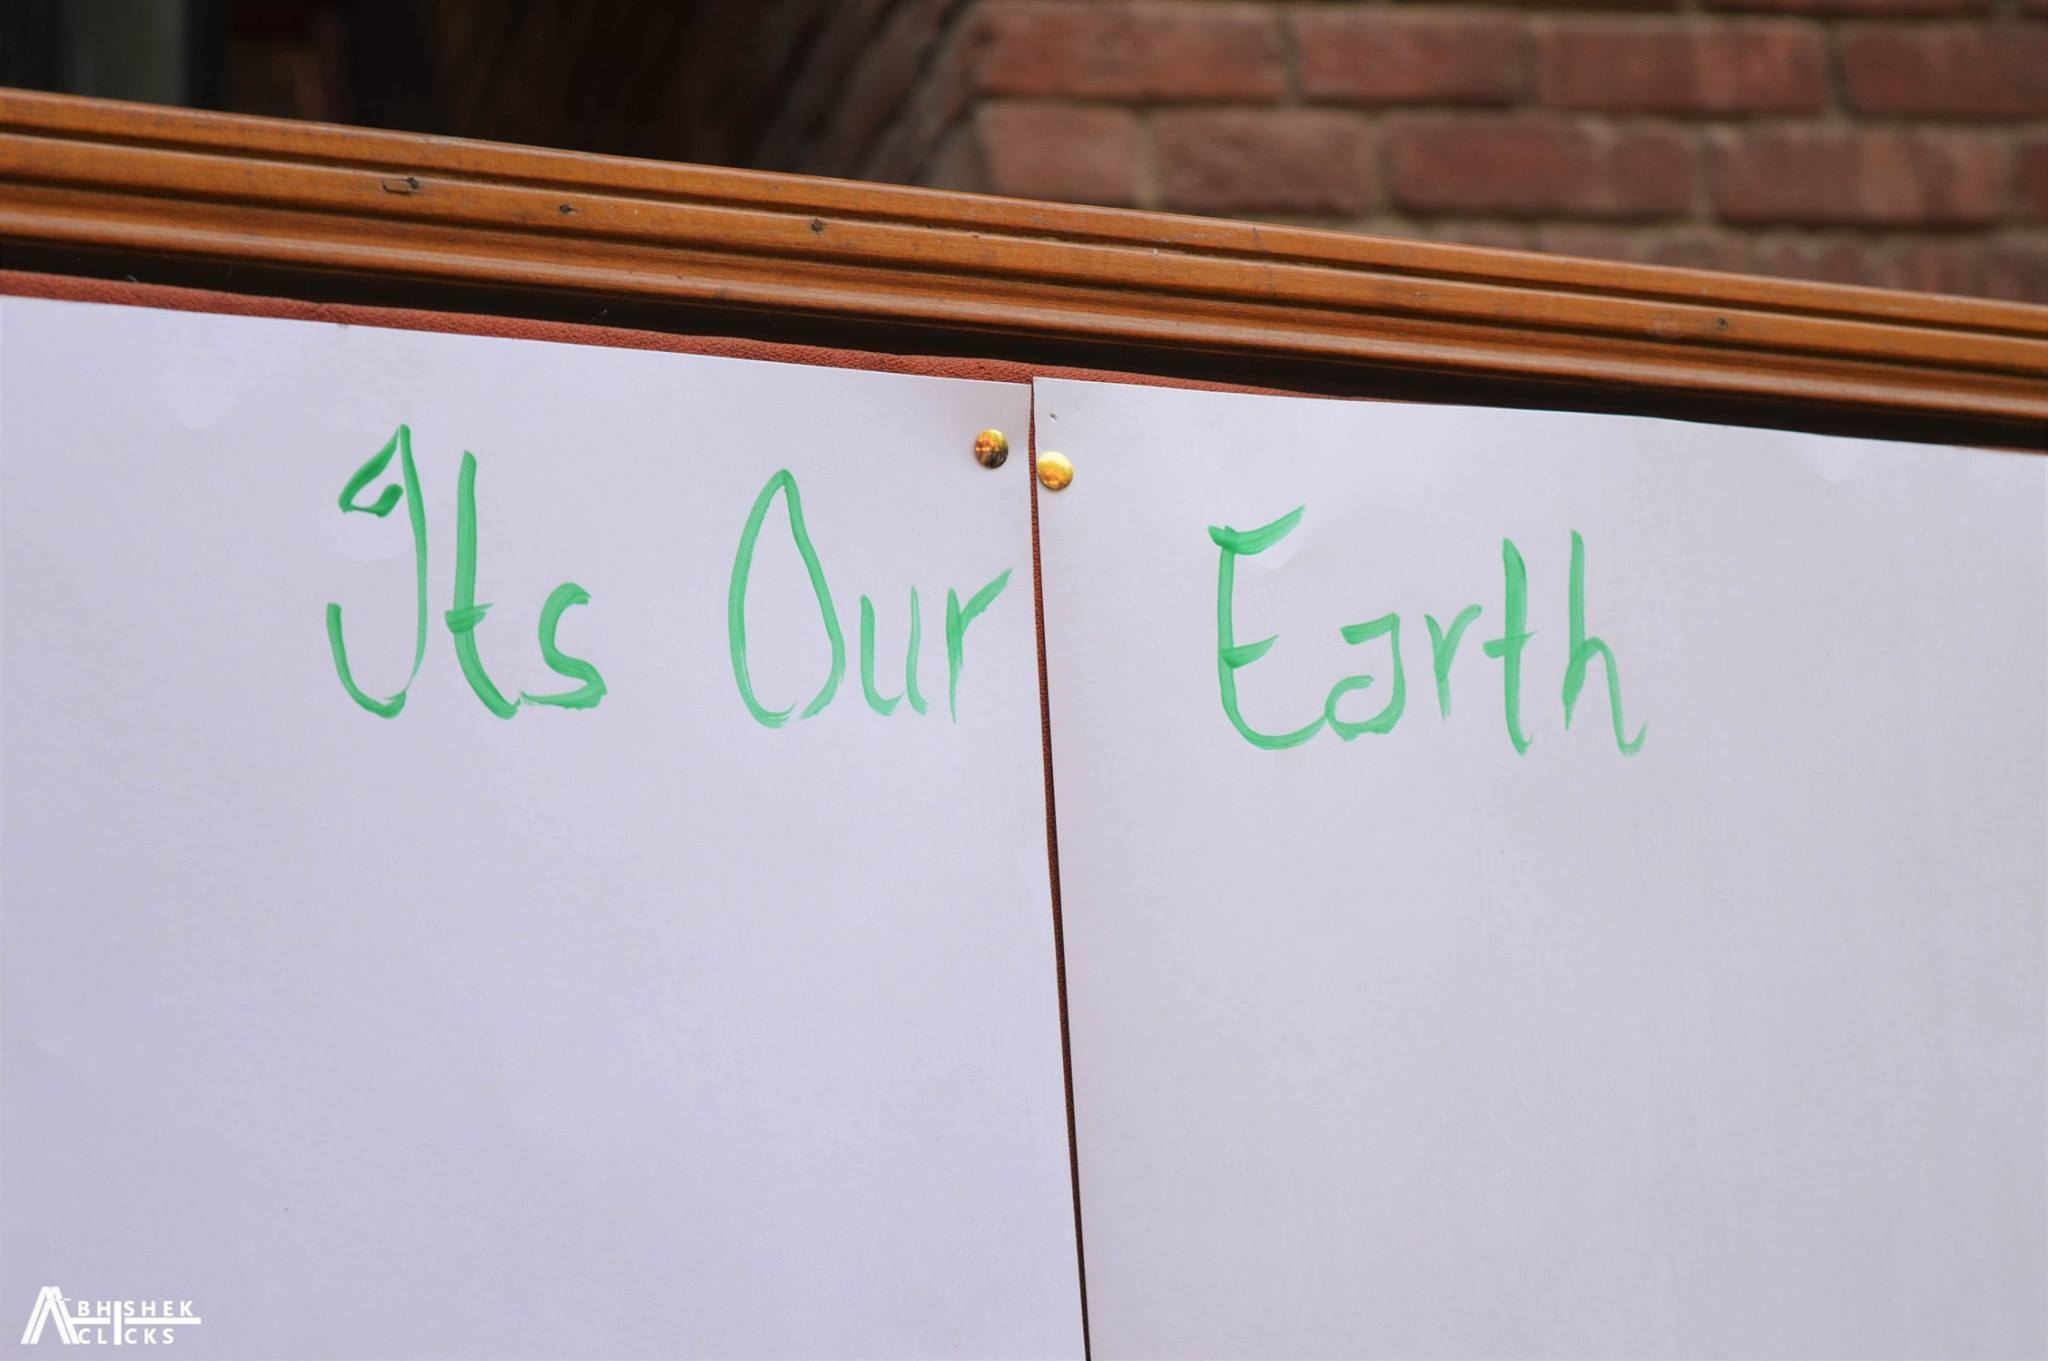 Its Our Earth
ABHISHEK
CLICKS